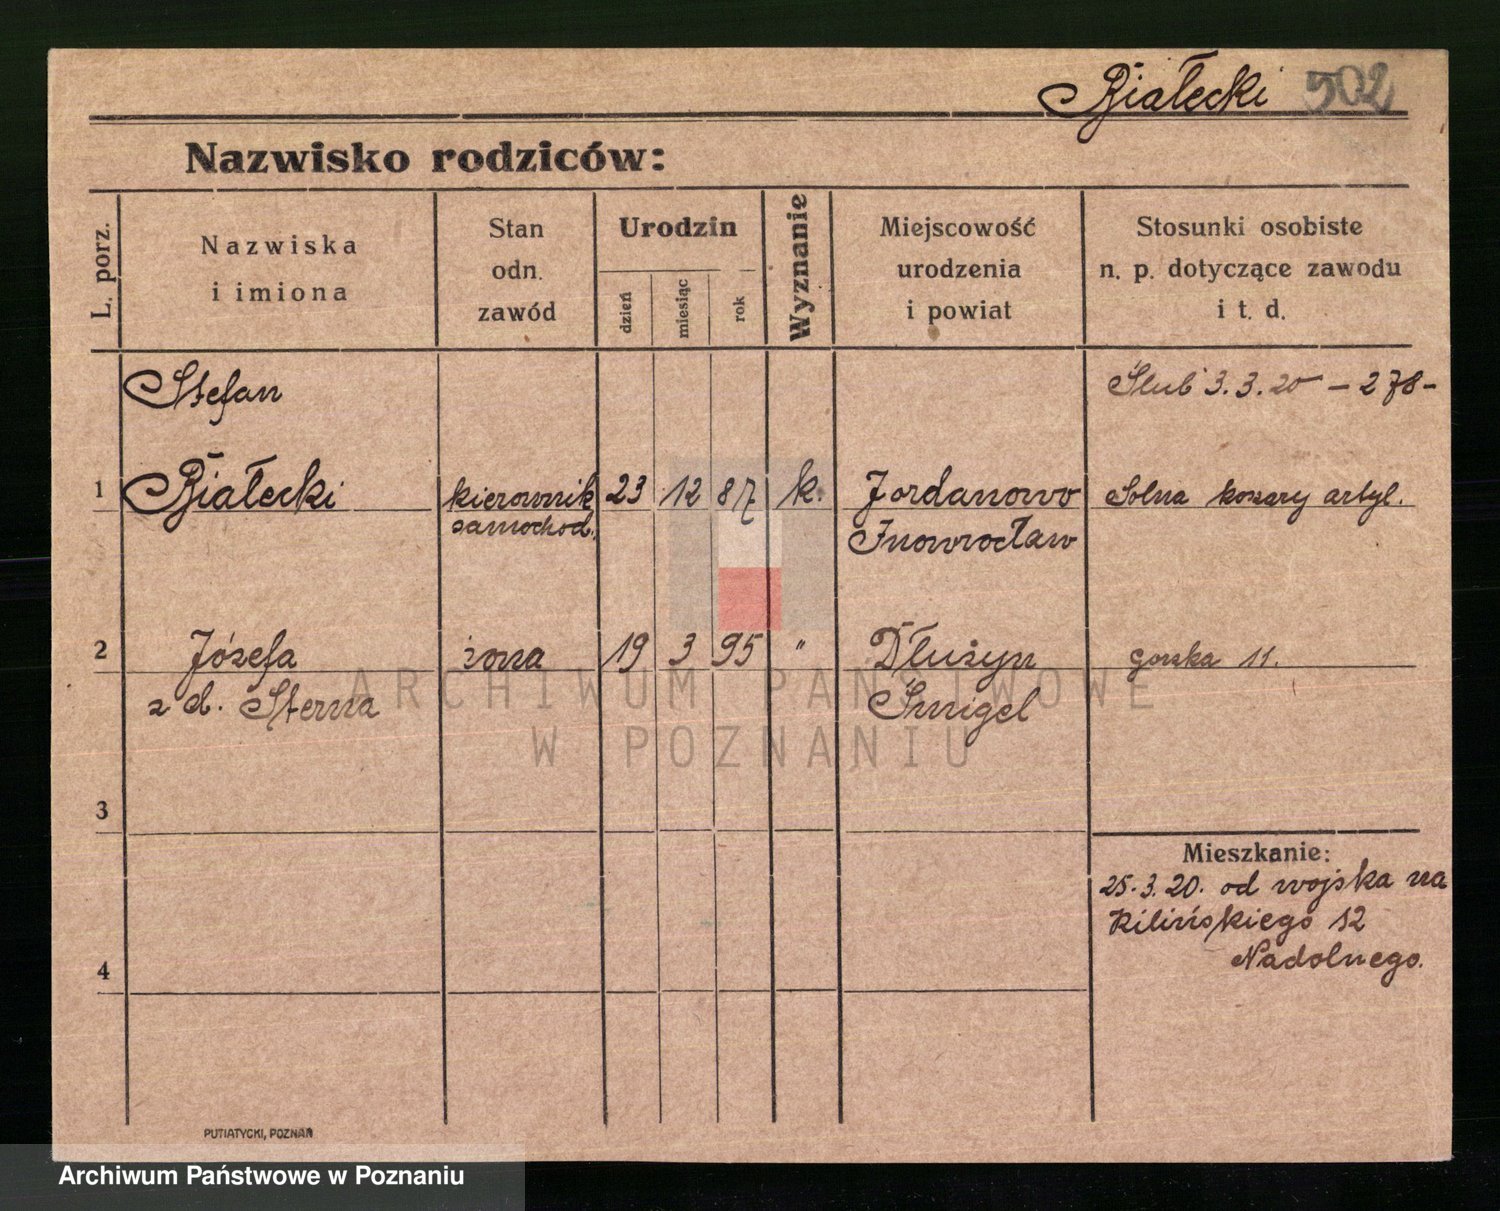 Białecki 502
Nazwisko rodziców:
L. porz.
Nazwiska
i imiona
Stan
odn.
zawód
Urodzin
dzień
miesiąc
rok
Wyznanie
Miejscowość
urodzenia
i powiat
Stosunki osobiste
n. p. dotyczące zawodu
i t. d.
Stefan
Ślub 3.3.20 – 278–
1 Białecki kierownik 23 12 87 k. Jordanowo Solna koszary artyl.
samochod. Inowrocław
2 Józefa żona 19 3 95 " Dłużyn gorska 11.
z d. Sterna Śmigel
ARCHIWUM PAŃSTWOWE
W POZNANIU
3
Mieszkanie:
25.3.20. od wojska na
Kilińskiego 12
Nadolnego.
4
PUTIATYCKI, POZNAŃ
Archiwum Państwowe w Poznaniu